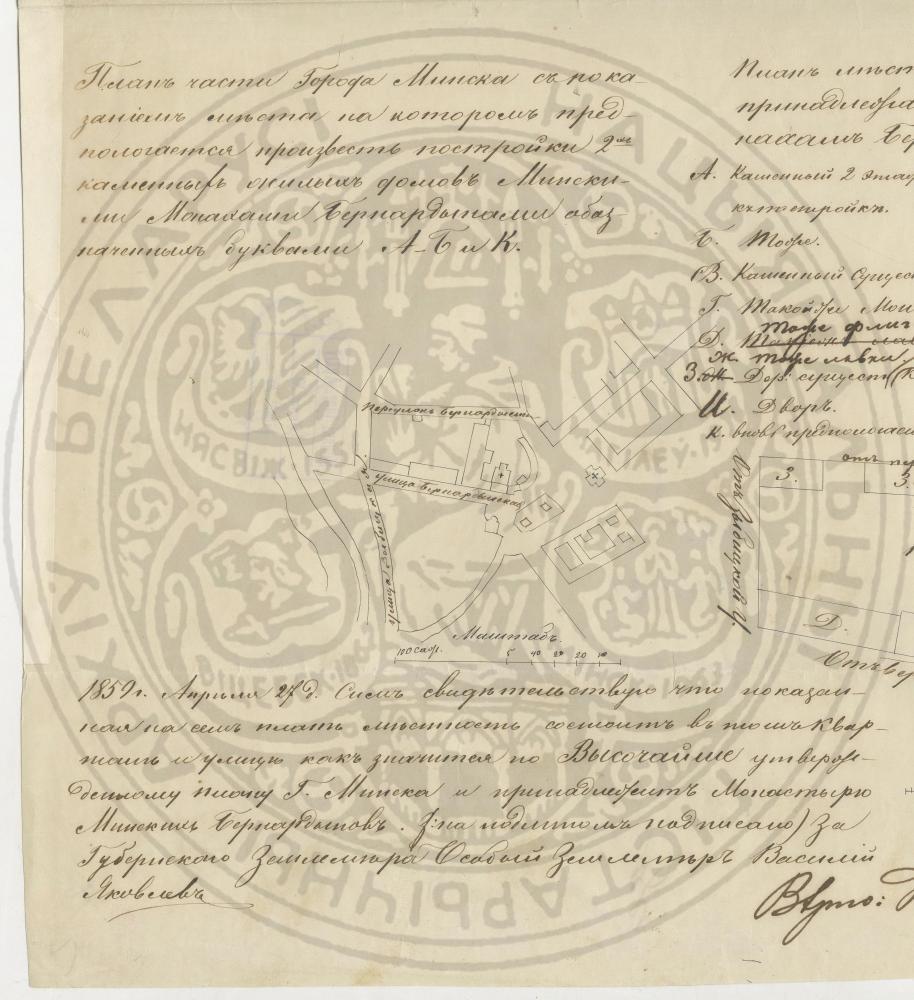 Планъ части Города Минска съ пока-
заніемъ мѣста на которомъ пред-
пологается произвесть постройки 2хъ
каменныхъ жилыхъ домовъ Мински-
ми Монахами Бернардынами обоз-
наченныхъ буквами А-Б и К.
Планъ мѣст
принадлежа
нахамъ Бер
А. Каменный 2 этаж
къ постройкѣ.
Б. Тоже.
В. Каменный Сущес
Г. Такой же Мон
Д. тоже флиг
Ж. тоже лавки.
З. Дер: сущест
И. Дворъ.
К. вновь предпологаем
Переулокъ Бернардынс
улица Бернардынская
улица Зыбицкая
Масштабъ.
100 саж. 5 40 20 20 10
отъ пер
З. З.
Отъ Зыбицкой У.
Д.
Отъ Бер
1859г. Апрѣля 27 д. Симъ свидѣтельствую что показан-
ная на семъ планѣ мѣстность состоитъ въ томъ Квар-
талѣ и улицѣ какъ значится по Высочайше утверж-
денному плану Г. Минска и принадлежитъ Монастырю
Минскихъ Бернардыновъ. (: на подлинномъ надписано) За
Губернскаго Землемѣра Особый Землемѣръ Василій
Яковлевъ
Вѣрно:
НАЦЫ
СТАРЫЧН
БЕЛАРУСІ